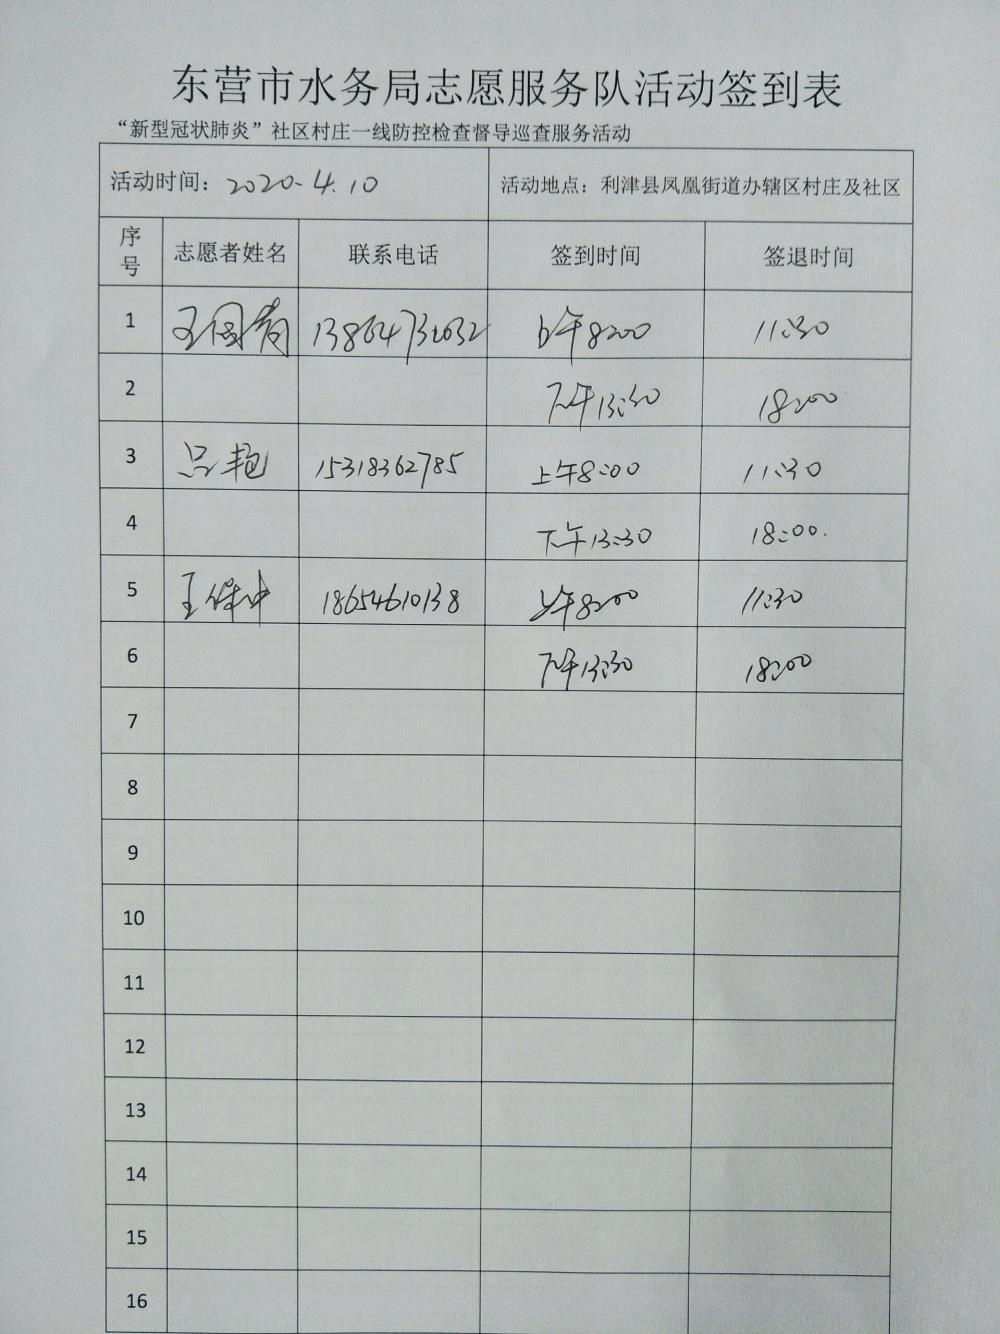 东营市水务局志愿服务队活动签到表
“新型冠状肺炎”社区村庄一线防控检查督导巡查服务活动
活动时间：2020-4.10 活动地点：利津县凤凰街道办辖区村庄及社区
序号 志愿者姓名 联系电话 签到时间 签退时间
1 王国青 上午8:00 11:30
2 下午13:30 18:00
3 吕艳 15318362785 上午8:00 11:30
4 下午13:30 18:00.
5 王 18654610138 上午8:00 11:30
6 下午13:30 18:00
7
8
9
10
11
12
13
14
15
16